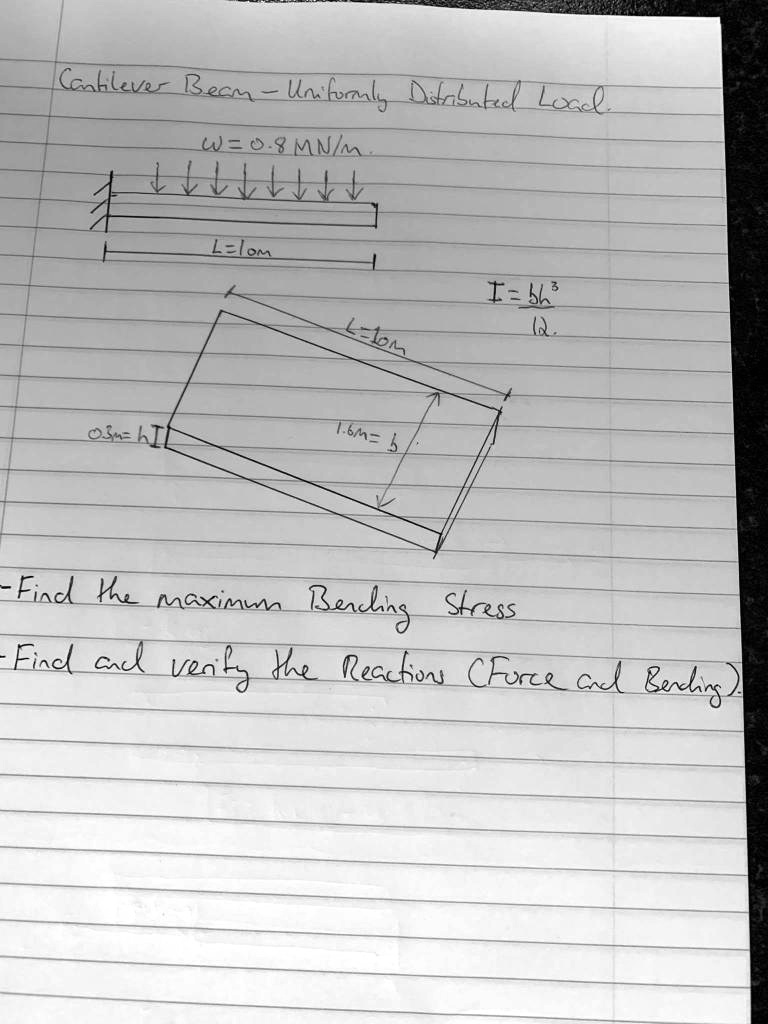 Cantilever Beam - Uniformly Distributed Load.
w = 0.8 MN/m.
L=10m
I = bh³
12.
L=10m
0.3m= h
1.6m= b
- Find the maximum Bending Stress
- Find and verify the Reactions (Force and Bending).